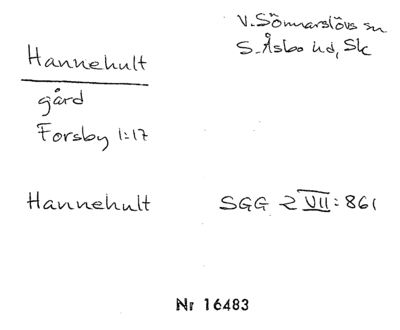 Hannehult
V. Sönnarslövs sn
S. Åsbo hd, Sk
gård
Forsby 1:17
Hannehult SGG 2 VII: 861
Nr 16483